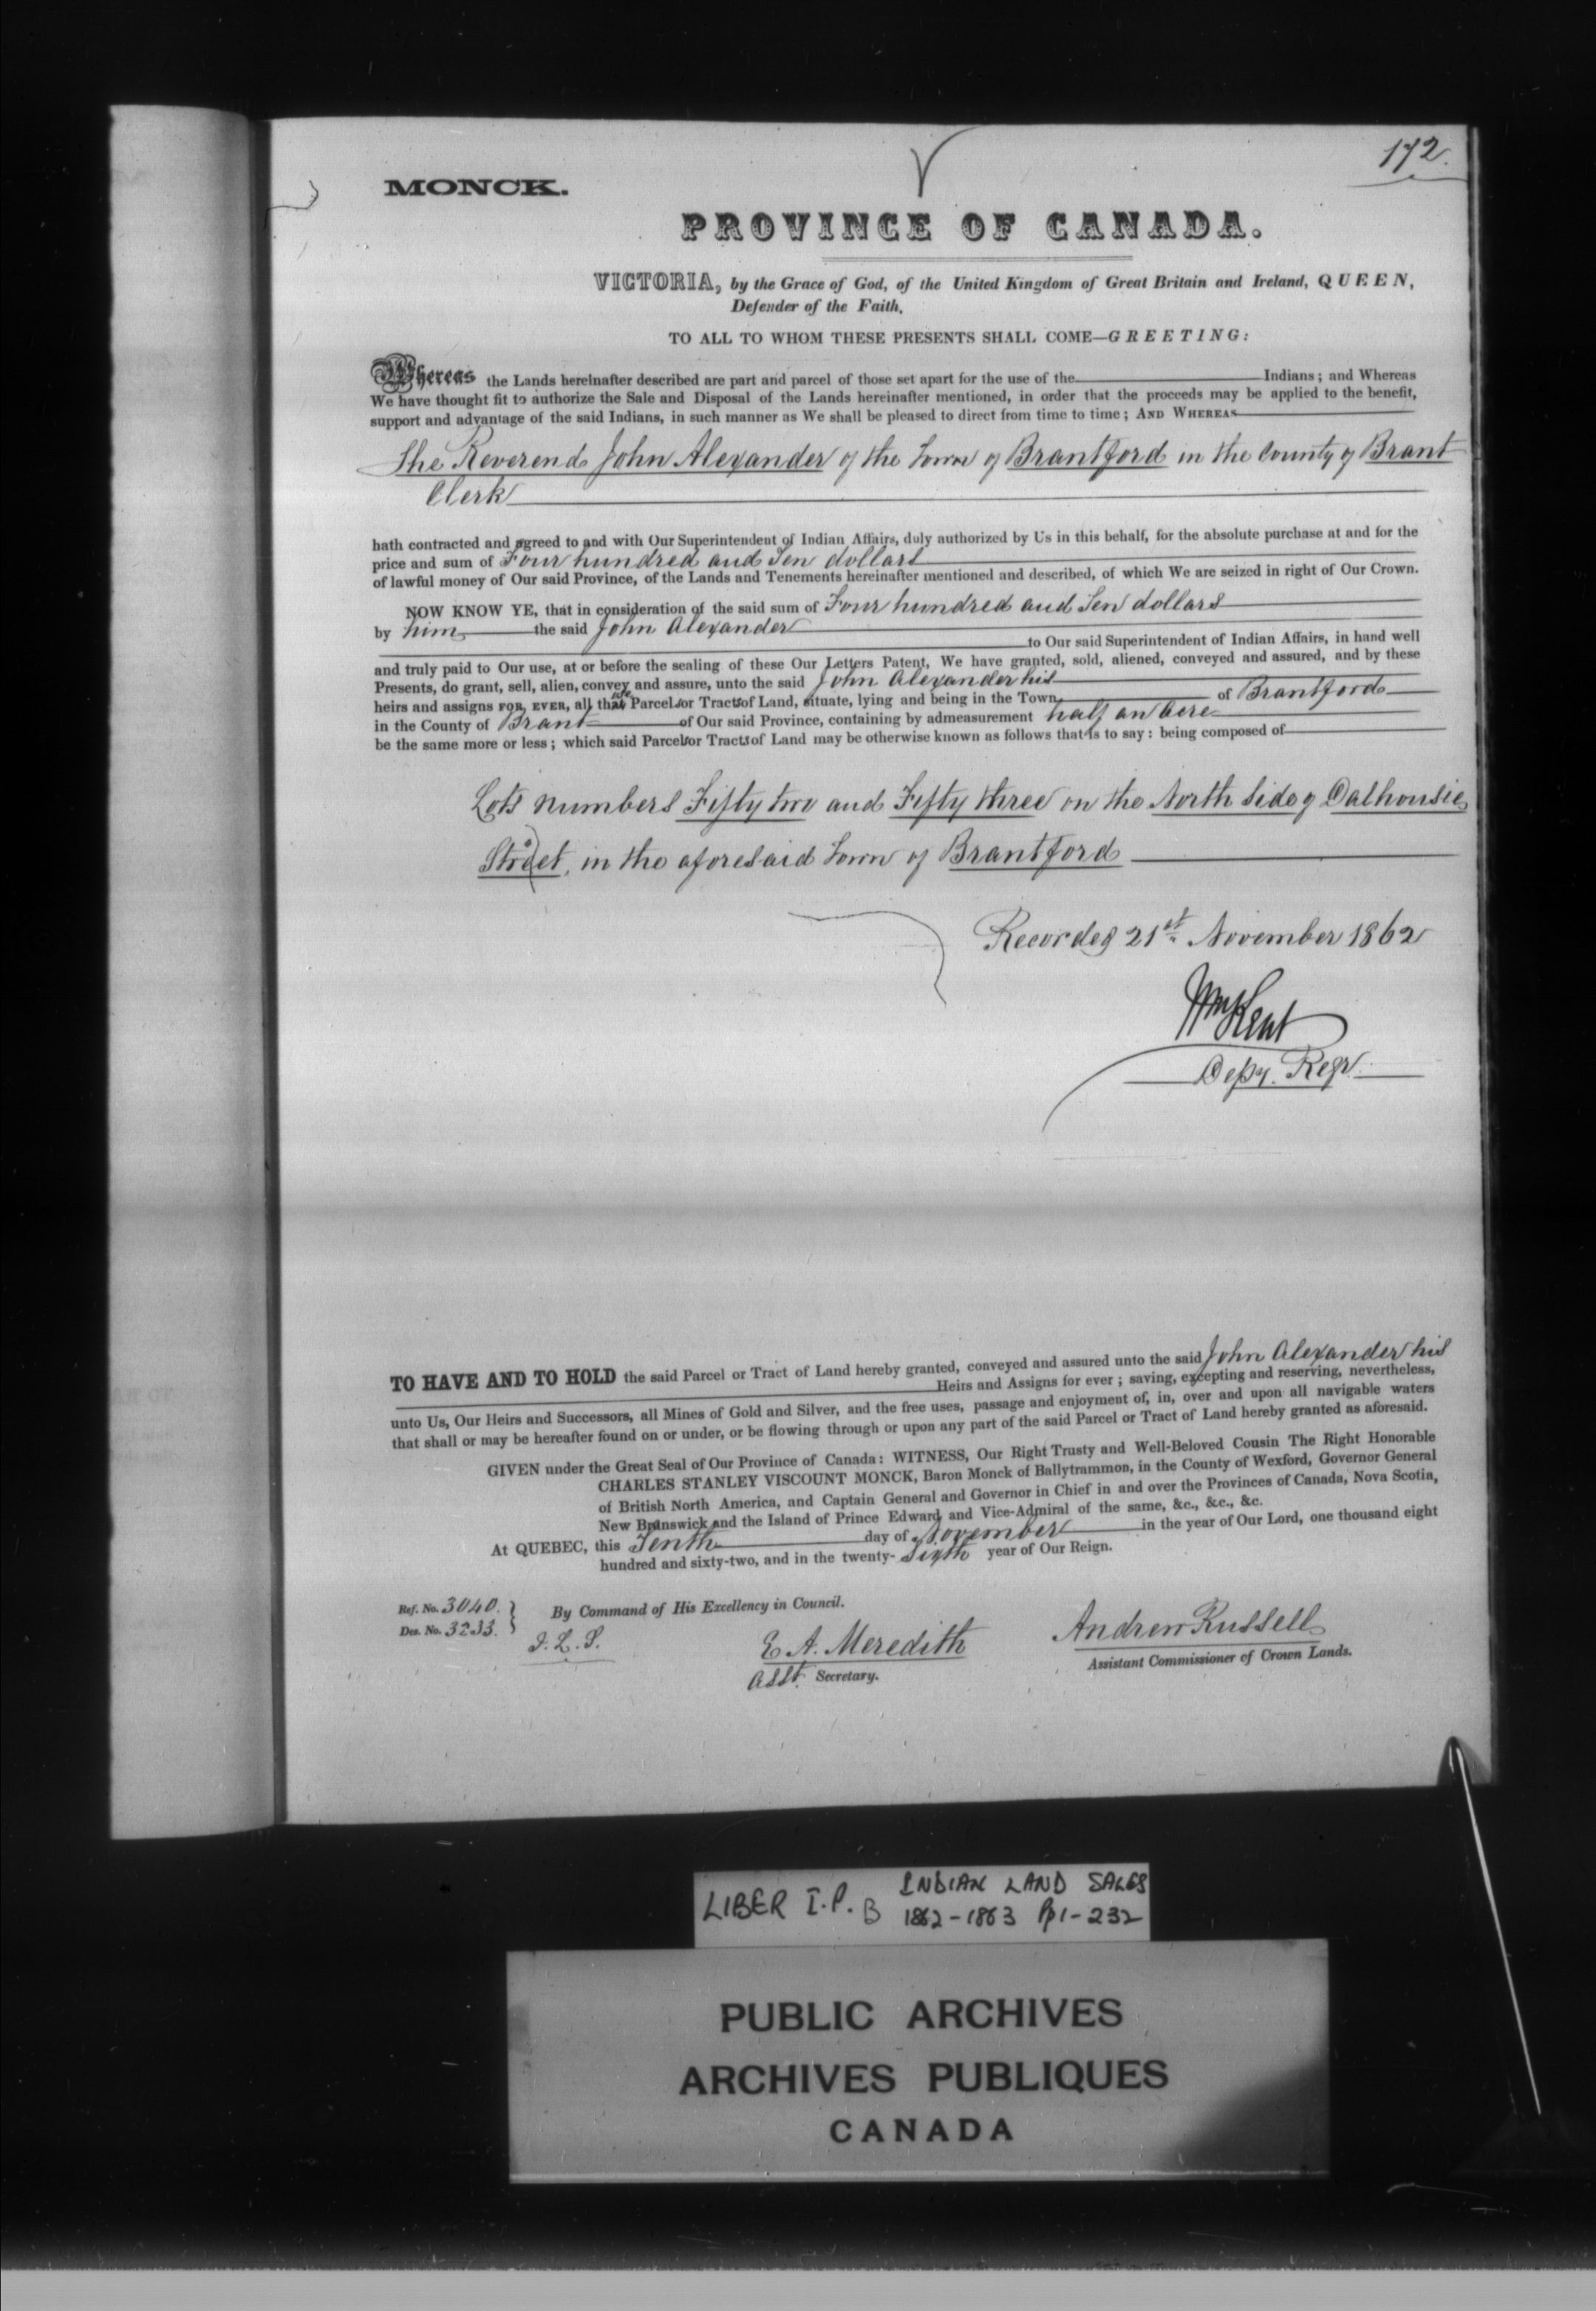 172.
MONCK.
PROVINCE OF CANADA.
VICTORIA, by the Grace of God, of the United Kingdom of Great Britain and Ireland, QUEEN,
Defender of the Faith,
TO ALL TO WHOM THESE PRESENTS SHALL COME—GREETING:
Whereas the Lands hereinafter described are part and parcel of those set apart for the use of the Indians; and Whereas
We have thought fit to authorize the Sale and Disposal of the Lands hereinafter mentioned, in order that the proceeds may be applied to the benefit,
support and advantage of the said Indians, in such manner as We shall be pleased to direct from time to time; AND WHEREAS
The Reverend John Alexander of the Town of Brantford in the County of Brant
Clerk
hath contracted and agreed to and with Our Superintendent of Indian Affairs, duly authorized by Us in this behalf, for the absolute purchase at and for the
price and sum of Four hundred and Ten dollars
of lawful money of Our said Province, of the Lands and Tenements hereinafter mentioned and described, of which We are seized in right of Our Crown.
NOW KNOW YE, that in consideration of the said sum of Four hundred and Ten dollars
by him the said John Alexander
to Our said Superintendent of Indian Affairs, in hand well
and truly paid to Our use, at or before the sealing of these Our Letters Patent, We have granted, sold, aliened, conveyed and assured, and by these
Presents, do grant, sell, alien, convey and assure, unto the said John Alexander his
heirs and assigns FOR EVER, all those Parcels or Tracts of Land, situate, lying and being in the Town of Brantford
in the County of Brant of Our said Province, containing by admeasurement half an Acre
be the same more or less; which said Parcels or Tracts of Land may be otherwise known as follows that is to say: being composed of
Lots numbers Fifty two and Fifty three on the North Side of Dalhousie
Street, in the aforesaid Town of Brantford
Recorded 21st November 1862
Wm Kent
Depy. Regr.
TO HAVE AND TO HOLD the said Parcel or Tract of Land hereby granted, conveyed and assured unto the said John Alexander his
Heirs and Assigns for ever; saving, excepting and reserving, nevertheless,
unto Us, Our Heirs and Successors, all Mines of Gold and Silver, and the free uses, passage and enjoyment of, in, over and upon all navigable waters
that shall or may be hereafter found on or under, or be flowing through or upon any part of the said Parcel or Tract of Land hereby granted as aforesaid.
GIVEN under the Great Seal of Our Province of Canada: WITNESS, Our Right Trusty and Well-Beloved Cousin The Right Honorable
CHARLES STANLEY VISCOUNT MONCK, Baron Monck of Ballytrammon, in the County of Wexford, Governor General
of British North America, and Captain General and Governor in Chief in and over the Provinces of Canada, Nova Scotia,
New Brunswick and the Island of Prince Edward, and Vice-Admiral of the same, &c., &c., &c.
At QUEBEC, this Tenth day of November in the year of Our Lord, one thousand eight
hundred and sixty-two, and in the twenty-Sixth year of Our Reign.
Ref. No. 3040.
Des. No. 3233.
By Command of His Excellency in Council.
I.L.S.
E A. Meredith
Asst. Secretary.
Andrew Russell
Assistant Commissioner of Crown Lands.
LIBER I.P. B INDIAN LAND SALES
1862-1863 Pp 1-232
PUBLIC ARCHIVES
ARCHIVES PUBLIQUES
CANADA